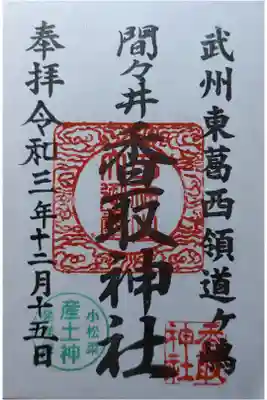 武州東葛西領道ヶ島
間々井香取神社
奉拝令和三年十二月十五日
香取神社
小松菜
産土神